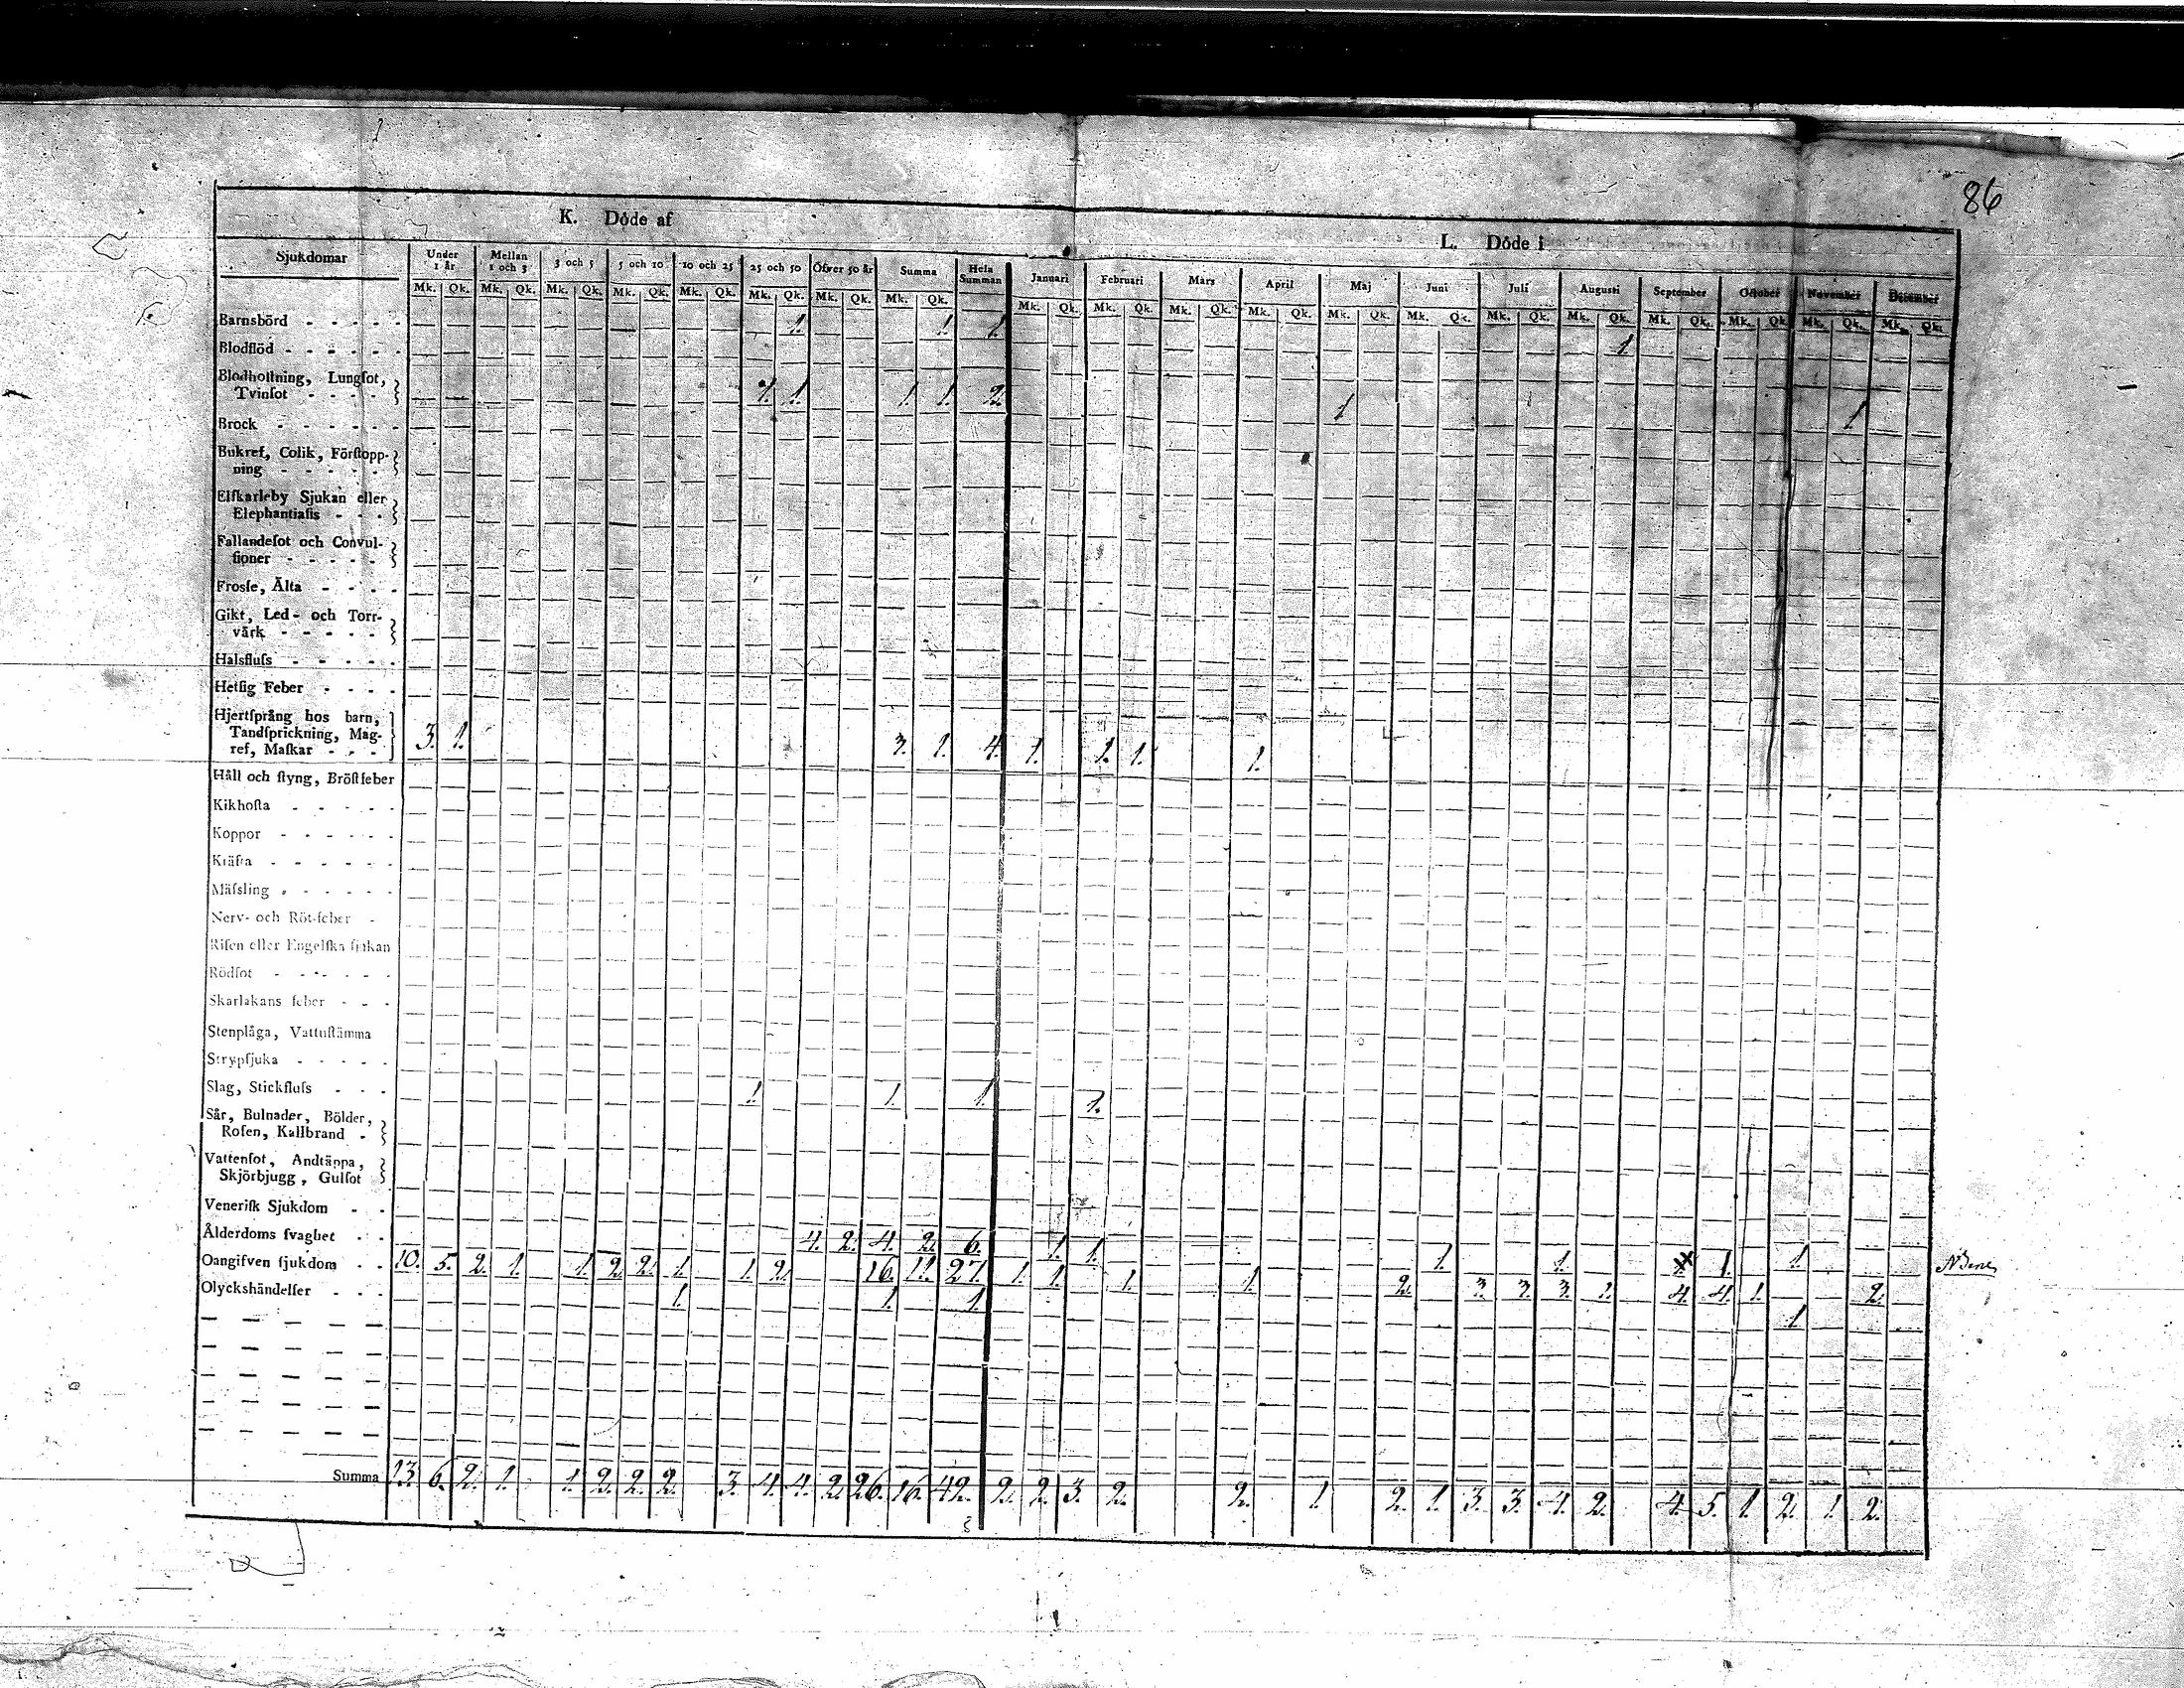 86
K. Döde af
L. Döde i
Sjukdomar Under 1 år Mellan 1 och 3 3 och 5 5 och 10 10 och 25 25 och 50 Öfver 50 år Summa Hela Summan Januari Februari Mars April Maj Juni Juli Augusti September October November December
Mk. Qk. Mk. Qk. Mk. Qk. Mk. Qk. Mk. Qk. Mk. Qk. Mk. Qk. Mk. Qk. Mk. Qk. Mk. Qk. Mk. Qk. Mk. Qk. Mk. Qk. Mk. Qk. Mk. Qk. Mk. Qk. Mk. Qk. Mk. Qk. Mk. Qk. Mk. Qk.
Barnsbörd - - - - - 1. 1. 1. 1.
Blodflöd - - - - - -
Blodhostning, Lungsot,
Tvinsot - - - - 1. 1. 1. 1. 2. 1 1
Brock - - - - - -
Bukref, Colik, Förstopp-
ning - - - - -
Elfkarleby Sjukan eller
Elephantiasis - - -
Fallandesot och Convul-
sioner - - - - -
Frossa, Älta - - - -
Gikt, Led- och Torr-
värk - - - - -
Halsfluss - - - - -
Hetsig Feber - - - -
Hjertsprång hos barn,
Tandsprickning, Mag-
ref, Maskar - - - 3. 1. 3. 1. 4. 1. 1. 1. 1.
Håll och styng, Bröstfeber
Kikhosta - - - - -
Koppor - - - - - -
Kräfta - - - - - -
Mässling - - - - - -
Nerv- och Röt-feber -
Risen eller Engelska sjukan
Rödsot - - - - - -
Skarlakans feber - - -
Stenplåga, Vattustämma
Strypsjuka - - - - -
Slag, Stickfluss - - - 1. 1. 1. 1.
Sår, Bulnader, Bölder,
Rosen, Kallbrand -
Vattensot, Andtäppa,
Skjörbjugg, Gulsot
Venerisk Sjukdom - -
Ålderdoms svaghet - - 4. 2. 4. 2. 6. 1. 1. 1. 1. x 1. 1
Oangifven sjukdom - - 10. 5. 2. 1. 1. 2. 2. 1. 1. 2. 16. 11. 27. 1. 1. 1. 1. 2. 3. 3. 3. 2. 4. 4. 1. 2.
Olyckshändelser - - - 1. 1. 1. 1
Summa 13. 6. 2. 1. 1. 2. 2. 2. 3. 4. 4. 2. 26. 16. 42. 2. 2. 3. 2. 2. 1. 2. 1. 3. 3. 4. 2. 4. 5. 1. 2. 1. 2.